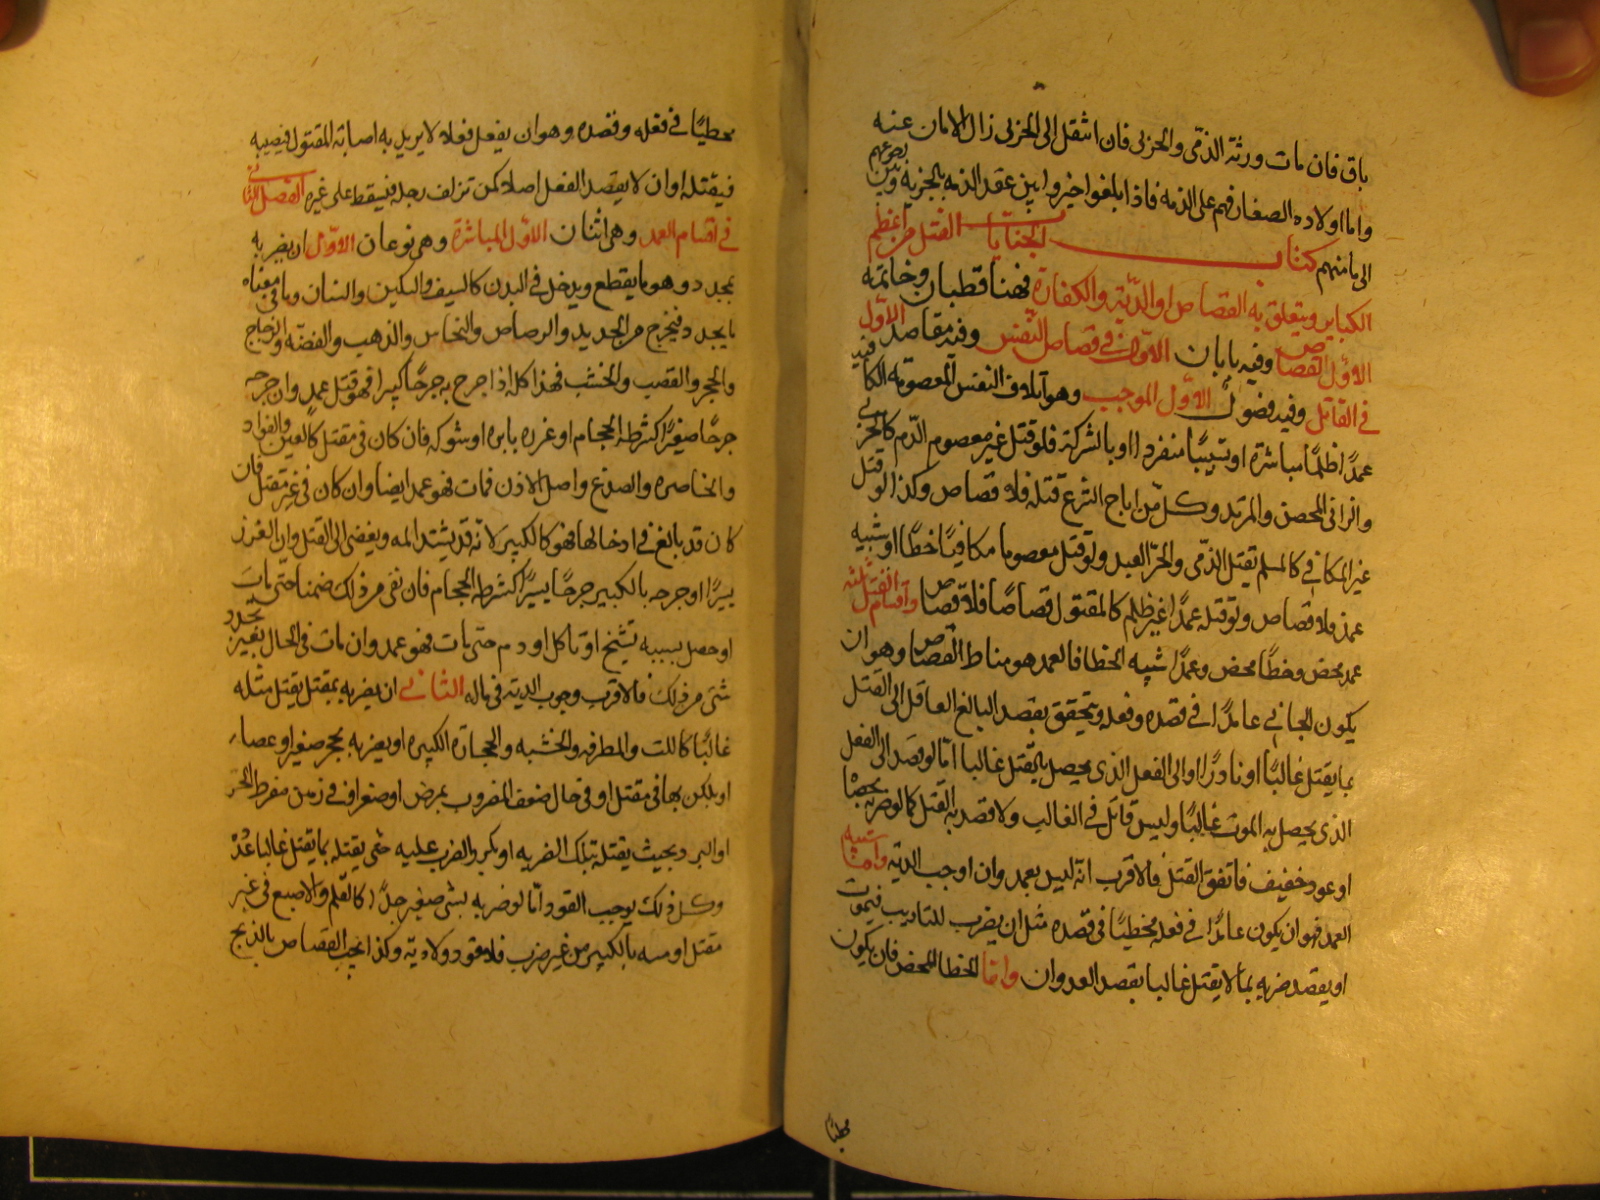 باق فان مات ورثه الذمى والحربى فان انتقل الى الحربى زال الامان عنه
واما اولاده الصغار فهم على الذمه فاذا بلغوا خيروا بين عقد الذمه بالجزيه وبين رجوعهم
الى مامنهم كتاب الجنايات القتل من اعظم
الكباير ويتعلق به القصاص او الدية والكفارة فهنا قطبان وخاتمه
الاول القصاص وفيه بابان الاول فى قصاص النفس وفيه مقاصد الاول
فى القاتل وفيه فصول الاول الموجب وهو اتلاف النفس المعصومه المكافيه
عمدًا ظلمًا مباشرة او تسبيبًا منفردا او بالشركة فلو قتل غير معصوم الدم كالحربى
والزانى المحصن والمرتد وكل من اباح الشرع قتله فلا قصاص وكذا لو قتل
غير المكافى كالمسلم يقتل الذمى والحر العبد ولو قتل معصوما مكافيًا خطًا او شبيه
عمد فلا قصاص ولو قتله عمدًا غير ظلم كالمقتول قصاصًا فلا قصاص واقسام القتل ثلثه
عمد محض وخطًا محض وعمدًا شبيه الخطا فالعمد هو مناط القصاص وهو ان
يكون الجانى عامدًا فى قصده وفعله ويتحقق بقصد البالغ العاقل الى القتل
بما يقتل غالبًا او نادرًا او الى الفعل الذى يحصل به القتل غالبا اما لو قصد الى الفعل
الذى يحصل به الموت غالبًا وليس قاتل فى الغالب ولا قصد به القتل كما لو ضربه بحصاة
او عود خفيف فاتفق القتل فالاقرب انه ليس بعمد وان اوجب الدية واما شبيه
العمد فهو ان يكون عامدًا فى فعله مخطيًا فى قصده مثل ان يضرب للتاديب فيموت
او يقصد ضربه بما لا يقتل غالبا بقصد العدوان واما الخطا المحض فان يكون
مخطيًا
مخطيًا فى فعله وقصده وهو ان يفعل فعلا لا يريد به اصابة المقتول فيصيبه
فيقتله او ان لا يقصد الفعل اصلا كمن تزلق رجله فيسقط على غيره الفصل الثانى
فى اقسام العمد وهى اثنان الاول المباشرة وهى نوعان الاول ان يضربه
بمحدد وهو ما يقطع ويدخل فى البدن كالسيف والسكين والسنان وما فى معناه
مما يحدد فيخرج من الحديد والرصاص والنحاس والذهب والفضه والزجاج
والحجر والقصب والخشب فهذا كله اذا جرح به جرحًا كبيرا فهو قتل عمد وان جرحه
جرحًا صغيرًا كشرطه الحجام او غرزه بابره او شوكه فان كان فى مقتل كالعين والفواد
والخاصره والصدغ واصل الاذن فمات فهو عمد ايضا وان كان فى غير مقتل فان
كان قد بالغ فى ادخالها فهو كالكبير لانه قد يشتد المه ويفضى الى القتل وان الغرز
يسيرًا او جرحه بالكبير جرحًا يسيرًا كشرطه الحجام فان بقى من ذلك ضمنا حتى مات
او حصل بسببه تشنج او تاكل او ورم حتى مات فهو عمد وان مات فى الحال بغير تجدد
شى من ذلك فالاقرب وجوب الدية فى ماله الثانى ان يضربه بمثقل يقتل مثله
غالبًا كاللت والمطرقه والخشبه والحجارة الكبيره او يضربه بحجر صغير او عصاء
او يلكزه بها فى مقتل او فى حال ضعف المضروب بمرض او صغر او فى زمن مفرط الحر
او البرد بحيث يقتله بتلك الضربه او يكرر الضرب عليه حتى يقتله بما يقتل غالبا عددًا
وكل ذلك يوجب القود اما لو ضربه بشى صغير جدًا كالقلم والاصبع فى غير
مقتل او مسه بالكبير من غير ضرب فلا قود ولا دية وكذا يجب القصاص بالذبح